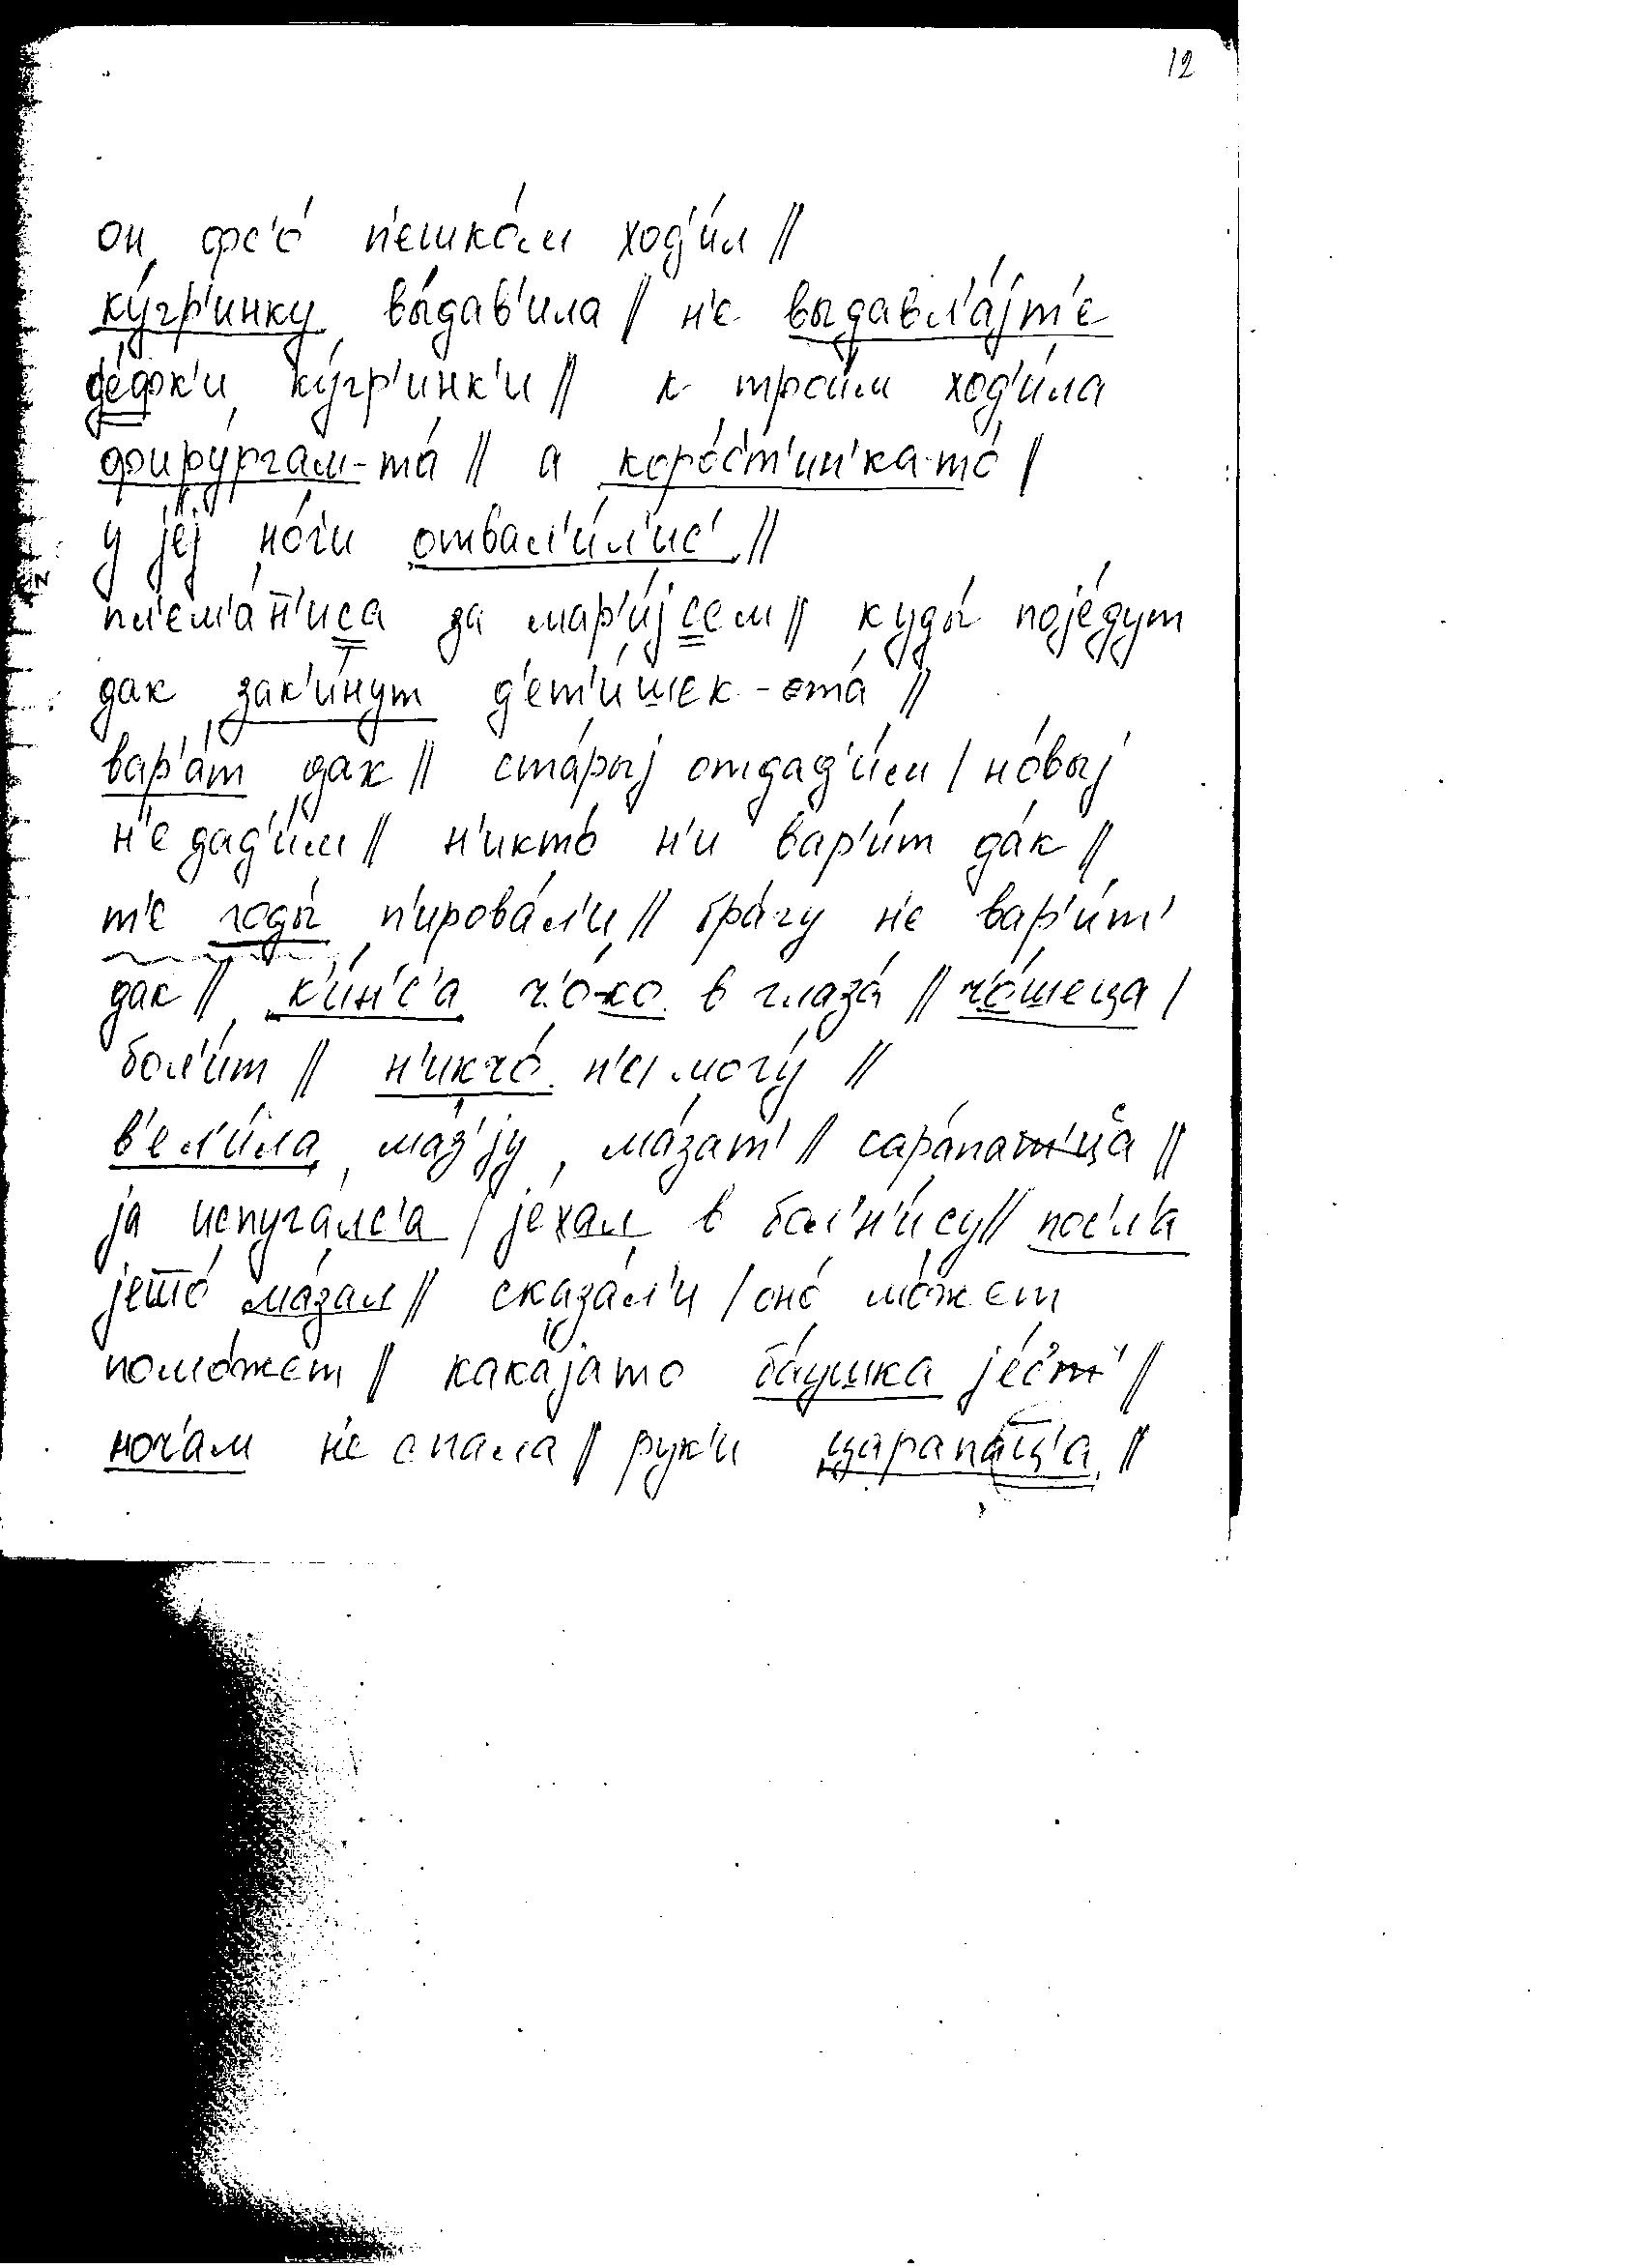 12
он фс'о́ п'ешко́м ход'и́л //
ку́гр'инку вы́дав'ила / н'е выдавл'а́јт'е
де́фк'и ку́гр'инк'и // к трои́м ход'и́ла
фиру́ргам-та́ // а коро́с'т'ин'ка-то́ /
у јеј но́г'и отвал'и́л'ис' //
пл'ем'а́н̄'иса за мар'и́јсем // куды́ поје́дут
дак зак'и́нут д'ет'и́шек-ета́ //
вар'а́т дак // ста́рыј отдад'и́м / но́выј
н'е дад'и́м // н'икто́ н'и вар'и́т да́к //
т'е годы́ п'ирова́л'и // бра́гу н'е вар'и́т'
дак // к'и́н'с'а ч'о́-ко в глаза́ // ч'о́шеца /
бол'и́т // н'икчо́ н'е могу́ //
в'ел'и́ла ма́з'ју ма́зат' // сара́пат'ца //
ја испуга́лс'а / је́хал в бол'н'и́су // посл'а́
јеш̄о́ ма́зал // сказа́л'и / оно́ мо́жет
помо́жет // кака́јато ба́ушка је́с'т' //
ноч'а́м н'е спала // рук'и царапа́ц̄'а //